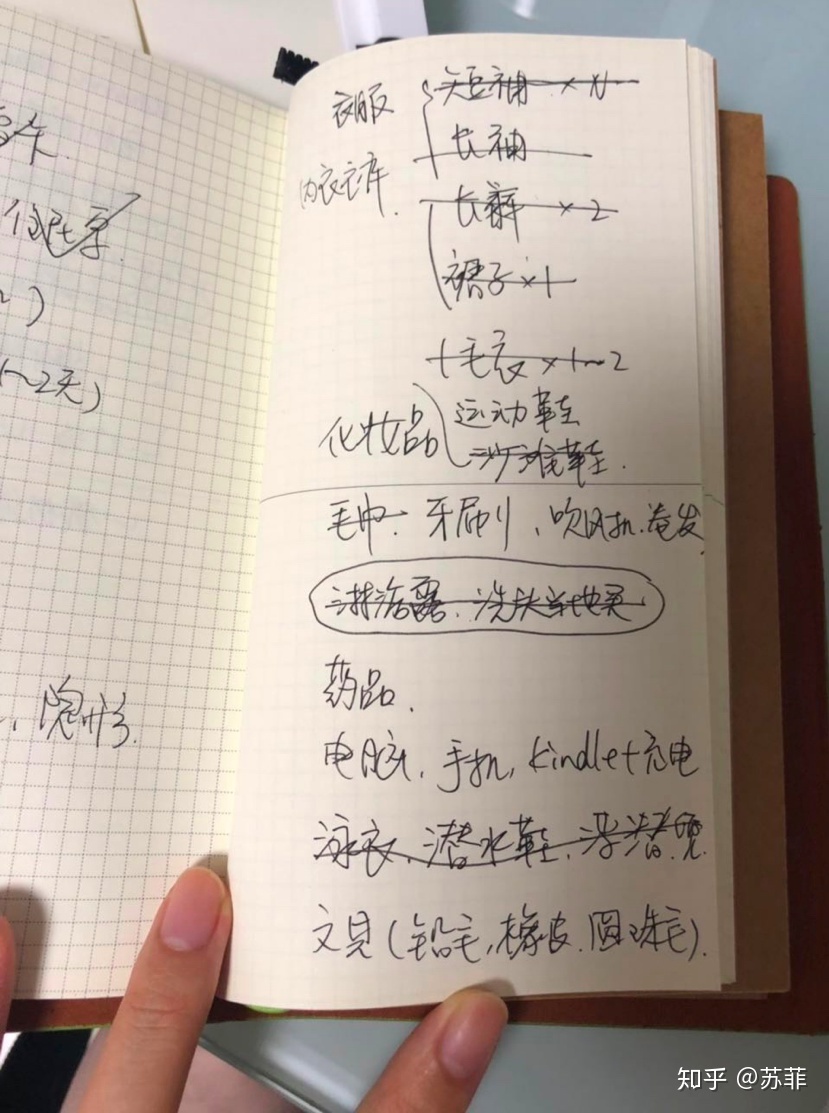 住
~)
(1~2天)
隐形.
衣服 短袖 × N
长袖
内衣衣库. 长裤 × 2
裙子 × 1
毛衣 × 1~2
运动鞋
化妆品 沙滩鞋.
毛巾. 牙刷、吹风机.卷发
沐浴露. 洗头
药品.
电脑, 手机, kindle+充电
泳衣, 潜水鞋, 浮潜
文具(铅笔,橡皮.圆珠笔).
知乎 @苏菲